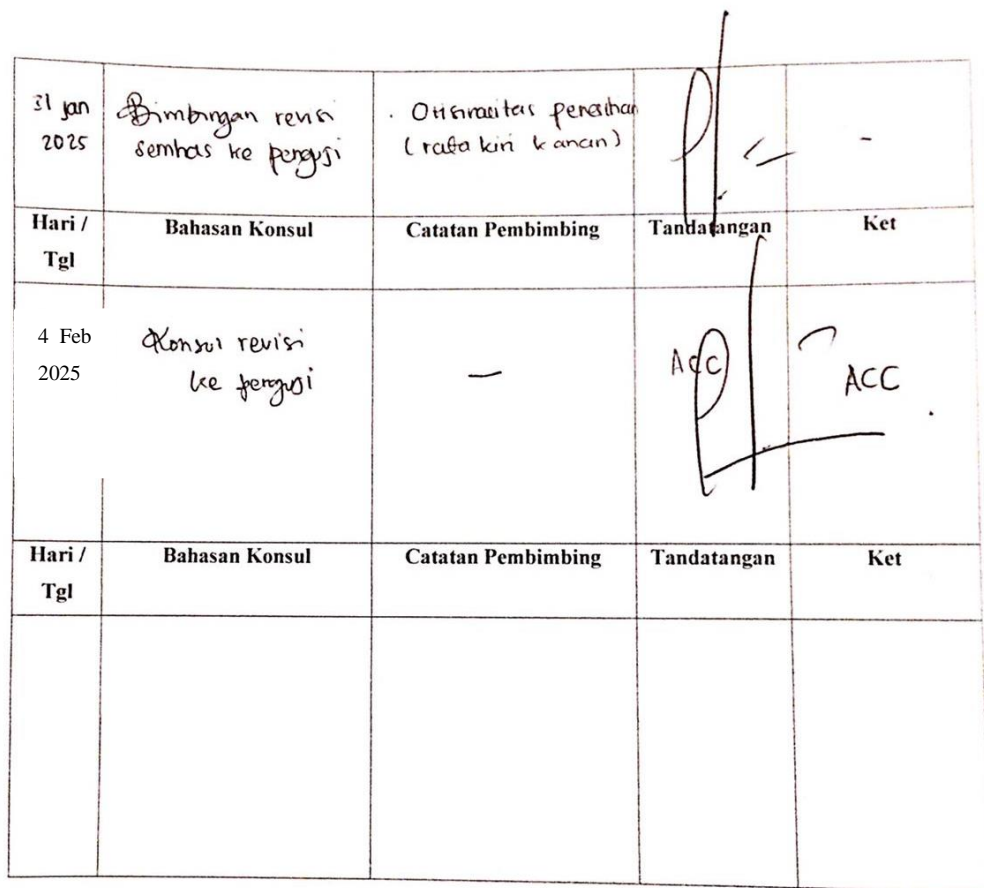 31 Jan
2025
Bimbingan revisi
semhas ke penguji
(rata kiri kanan)
-
Hari /
Tgl
Bahasan Konsul
Catatan Pembimbing
Tandatangan
Ket
4 Feb
2025
Konsul revisi
ke penguji
—
ACC
ACC
Hari /
Tgl
Bahasan Konsul
Catatan Pembimbing
Tandatangan
Ket